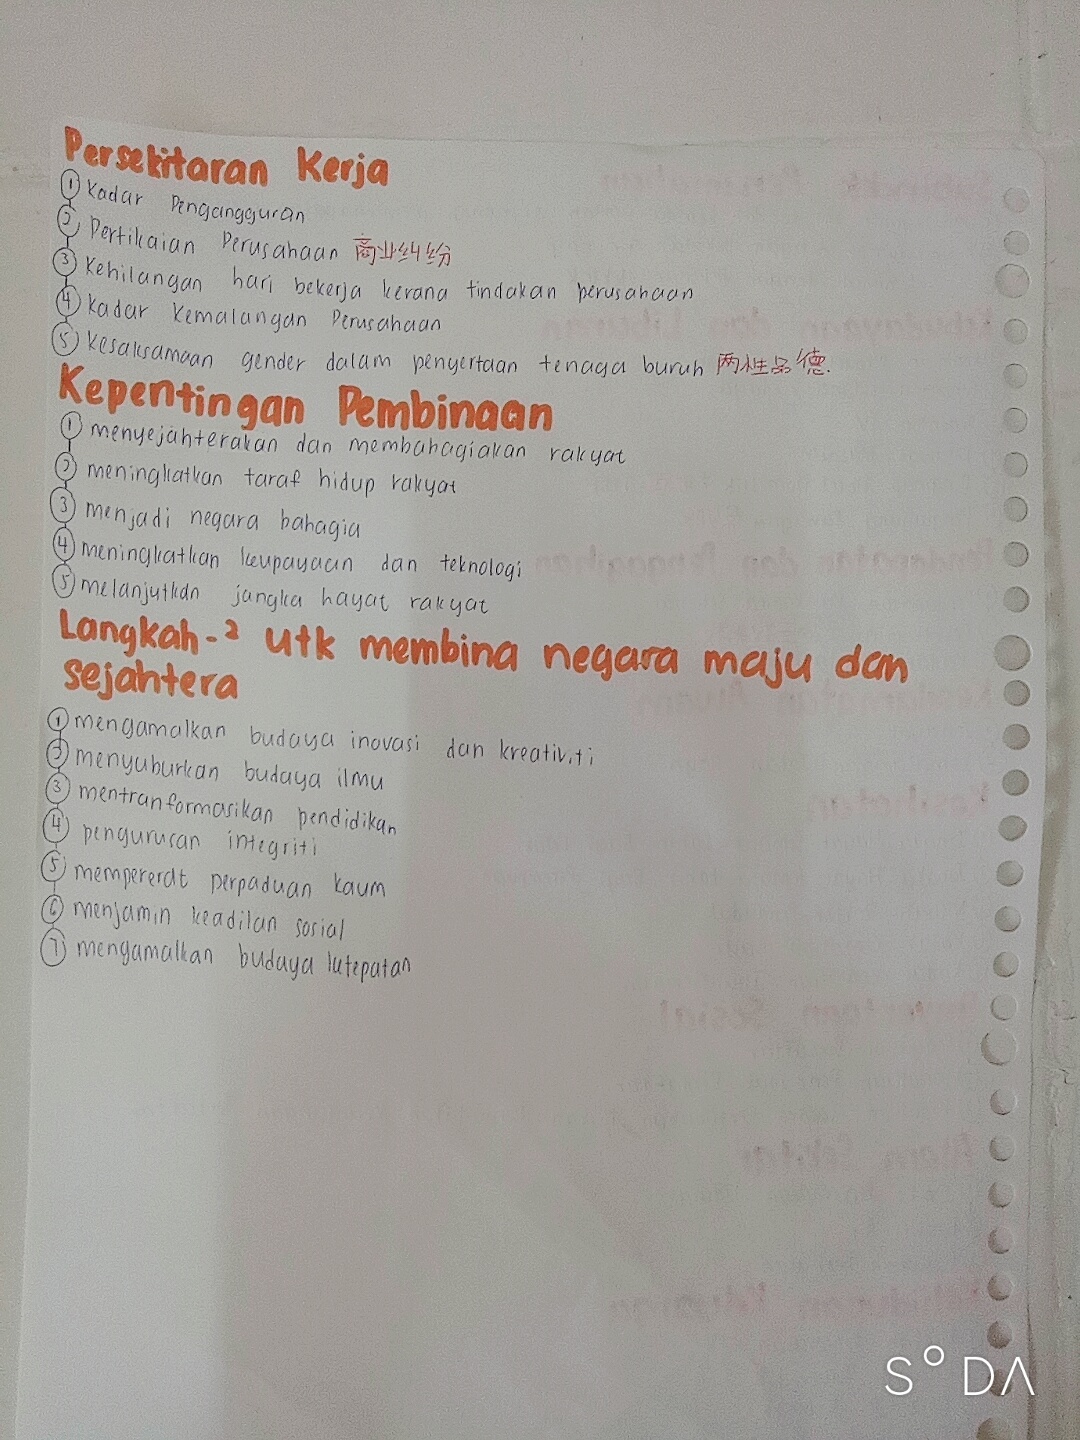 Persekitaran Kerja
① Kadar Pengangguran
② Pertikaian Perusahaan 商业纠纷
③ Kehilangan hari bekerja kerana tindakan perusahaan
④ Kadar Kemalangan Perusahaan
⑤ Kesaksamaan gender dalam penyertaan tenaga buruh 两性品德.
Kepentingan Pembinaan
① menyejahterakan dan membahagiakan rakyat
② meningkatkan taraf hidup rakyat
③ menjadi negara bahagia
④ meningkatkan keupayaan dan teknologi
⑤ melanjutkan jangka hayat rakyat
Langkah-² utk membina negara maju dan
sejahtera
① mengamalkan budaya inovasi dan kreativiti
② menyuburkan budaya ilmu
③ mentranformasikan pendidikan
④ pengurusan integriti
⑤ mempererat perpaduan kaum
⑥ menjamin keadilan sosial
⑦ mengamalkan budaya
SODA